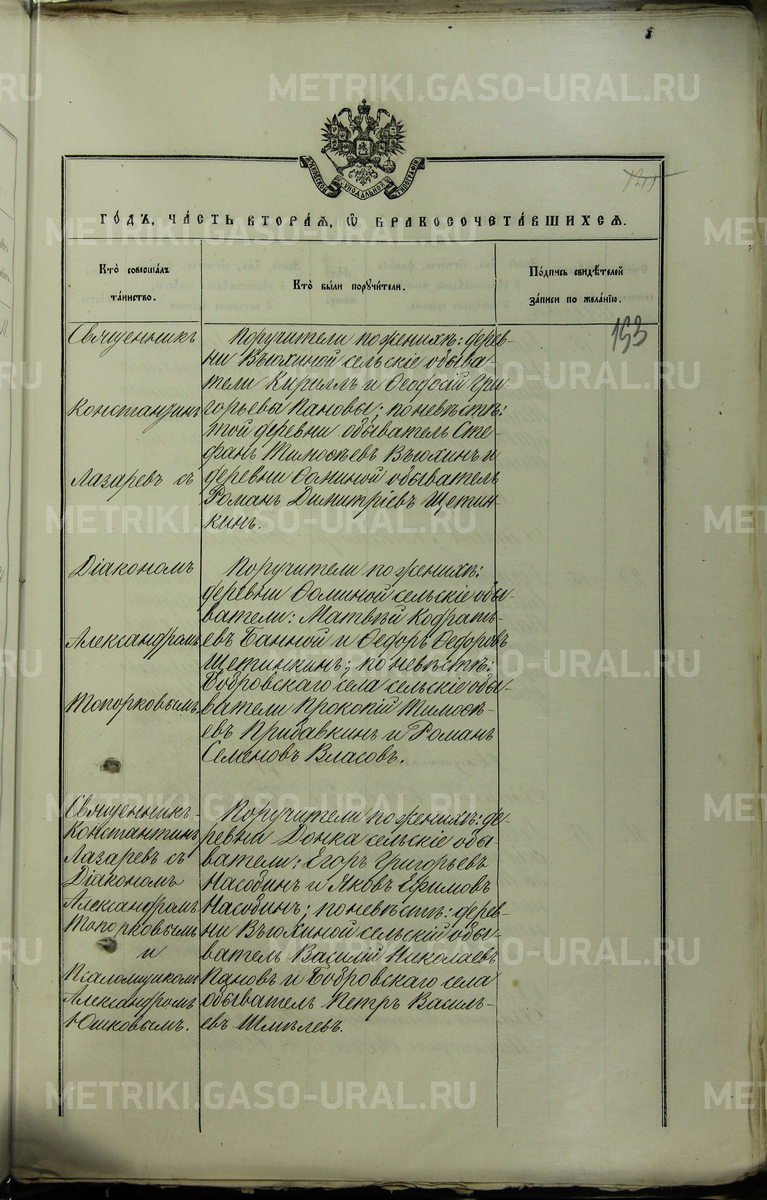 METRIKI.GASO-URAL.RU
МОСКОВСКОЙ СѴНОДАЛЬНОЙ ТИПОГРАФІИ
153
го́дъ, ча́сть втора́ѧ, ѡ҆ бракосочета́вшихсѧ.
Кто̀ соверша́лъ
та́инство.
Кто̀ бы́ли порꙋчи́тели.
По́дпись свидѣ́телей
за́писи по жела́нїю.
Священникъ
Константинъ
Лазаревъ съ
Поручители по женихѣ: дерев-
ни Вьюхиной сельскіе обыва-
тели Кириллъ и Ѳеодосій Гри-
горьевы Пановы; по невѣстѣ:
той деревни обыватель Сте-
фанъ Тимоѳеевъ Вьюхинъ и
деревни Ѳоминой обыватель
Романъ Димитріевъ Щетин-
кинъ.
Діакономъ
Александромъ
Топорковымъ.
Поручители по женихѣ:
деревни Ѳоминой сельскіе обы-
ватели: Матвѣй Кодрать-
евъ Банной и Ѳедоръ Ѳедоровъ
Щетинкинъ; по невѣстѣ:
Бобровскаго села сельскіе обы-
ватели Прокопій Тимоѳе-
евъ Прибавкинъ и Романъ
Семеновъ Власовъ.
Священникъ
Константинъ
Лазаревъ съ
Діакономъ
Александромъ
Топорковымъ
и
Псаломщикомъ
Александромъ
Юшковымъ.
Поручители по женихѣ: де-
ревни Донка сельскіе обы-
ватели: Егоръ Григорьевъ
Насобинъ и Яковъ Ефимовъ
Насобинъ; по невѣстѣ: дерев-
ни Вьюхиной сельскій обы-
ватель Василій Николаевъ
Пановъ и Бобровскаго села
обыватель Петръ Василь-
евъ Шмелевъ.